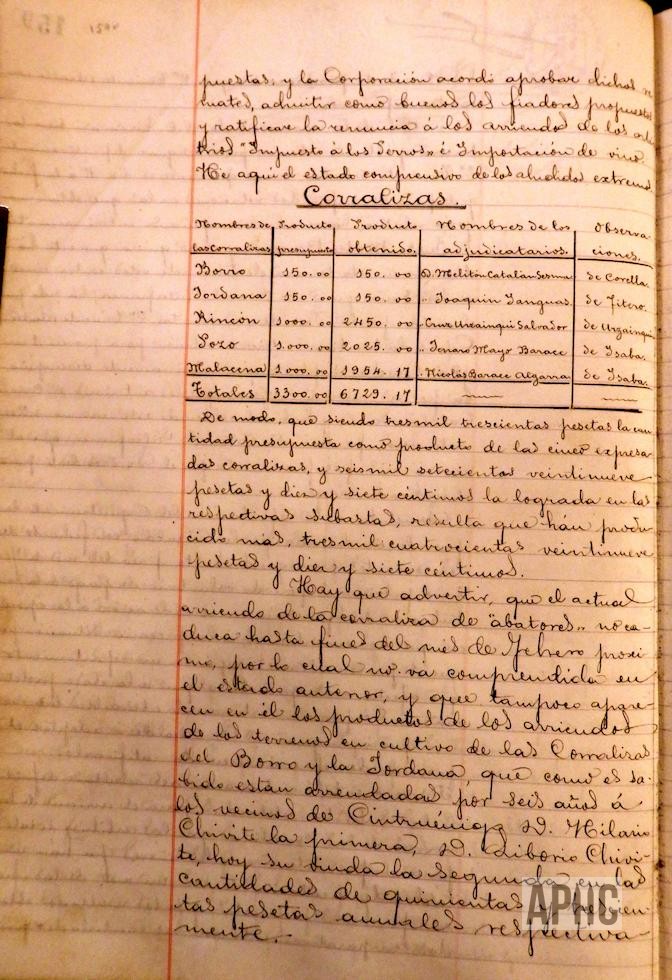 159
puestas, y la Corporación acordó aprobar dichos re
mates, admitir como buenos los fiadores propuestos
y ratificar la renuncia á los arriendos de los arbi
trios "Impuesto á los Perros" é Importación de vino.
He aquí el estado comprensivo de los aludidos extremos
Corralizas.
Nombres de Producto Producto Nombres de los Observa-
las corralizas presupuesto obtenido. adjudicatarios. ciones.
Borro 150.00 150.00 D. Melitón Catalán Sesma de Corella.
Jordana 150.00 150.00 " Joaquin Yanguas. de Fitero.
Rincón 1000.00 2450.00 " Cruz Urzainqui Salvador de Urzainqui
Pozo 1.000.00 2025.00 " Jenaro Mayo Barace de Isaba.
Malacena 1.000.00 1954.17 " Nicolás Barace Algarra de Isaba.
Totales 3300.00 6729.17
De modo, que siendo tres mil trescientas pesetas la can
tidad presupuesta como producto de las cinco expresa-
das corralizas, y seis mil setecientas veintinueve
pesetas y diez y siete céntimos la lograda en las
respectivas subastas, resulta que hán produ
cido mas, tres mil cuatrocientas veintinueve
pesetas y diez y siete céntimos.
Hay que advertir, que el actual
arriendo de la corraliza de "abatores" no ca-
duca hasta fines del mes de Febrero proxi
mo, por lo cual no vá comprendida en
el estado anterior, y que tampoco apare-
cen en él los productos de los arriendos
de los terrenos en cultivo de las Corralizas
del Borro y la Jordana, que como es sa-
bido estan arrendadas por seis años á
los vecinos de Cintruénigo D. Hilario
Chivite la primera, D. Liborio Chivi-
te, hoy su viuda la segunda en las
cantidades de quinientas
tas pesetas anuales respectiva-
mente.-
APHC